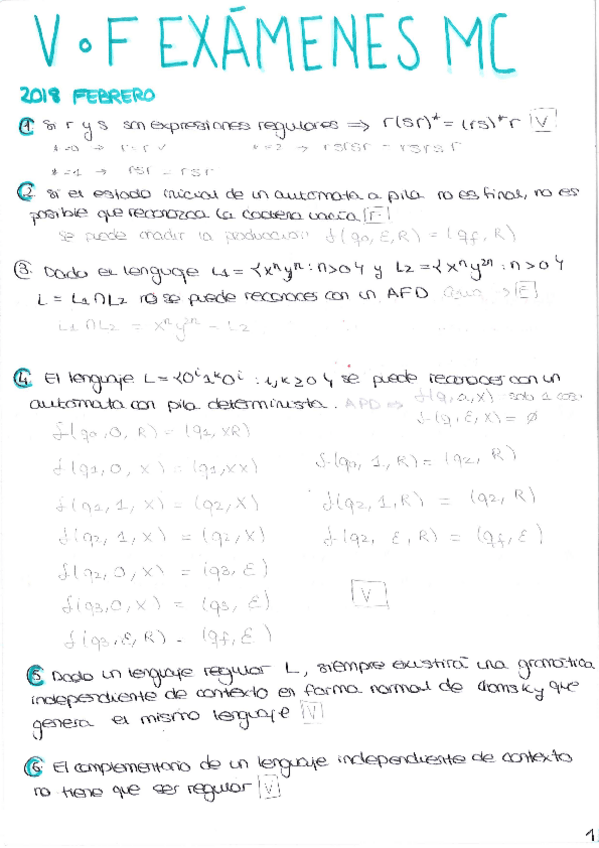 V o F EXÁMENES MC
2018 FEBRERO
1. Si r y s son expresiones regulares ⇒ r(sr)* = (rs)*r [V]
*=0 → r=r ✓ *=2 → rsrsr = rsrsr
*=1 → rsr = rsr
2. Si el estado inicial de un autómata a pila no es final, no es
posible que reconozca la cadena vacía [F]
se puede añadir la producción: f(q0, ε, R) = (qf, R)
3. Dado el lenguaje L1 = {xⁿyⁿ : n>0} y L2 = {xⁿy²ⁿ : n>0}
L = L1∩L2 no se puede reconocer con un AFD
L1∩L2 = xⁿy²ⁿ - L2
4. El lenguaje L = {0ⁱ1ᵏ0ⁱ : i,k≥0} se puede reconocer con un
autómata con pila determinista. APD ⇒ f(q,a,X) solo 1 cos.
f(q, ε, X) = ø
f(q0, 0, R) = (q1, XR)
f(q1, 0, X) = (q1, XX) f(q0, 1, R) = (q2, R)
f(q2, 1, X) = (q2, X) f(q2, 1, R) = (q2, R)
f(q2, 1, X) = (q2, X) f(q2, ε, R) = (qf, ε)
f(q2, 0, X) = (q3, ε)
f(q3, 0, X) = (q3, ε) [V]
f(q3, ε, R) = (qf, ε)
5. Dado un lenguaje regular L, siempre existirá una gramática
independiente de contexto en forma normal de Chomsky que
genera el mismo lenguaje [V]
6. El complementario de un lenguaje independiente de contexto
no tiene que ser regular [V]
1